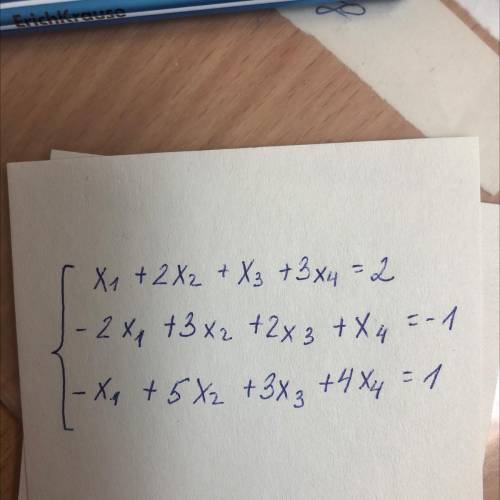 ErichKrause
x₁ + 2x₂ + x₃ + 3x₄ = 2
- 2x₁ + 3x₂ + 2x₃ + x₄ = - 1
- x₁ + 5x₂ + 3x₃ + 4x₄ = 1